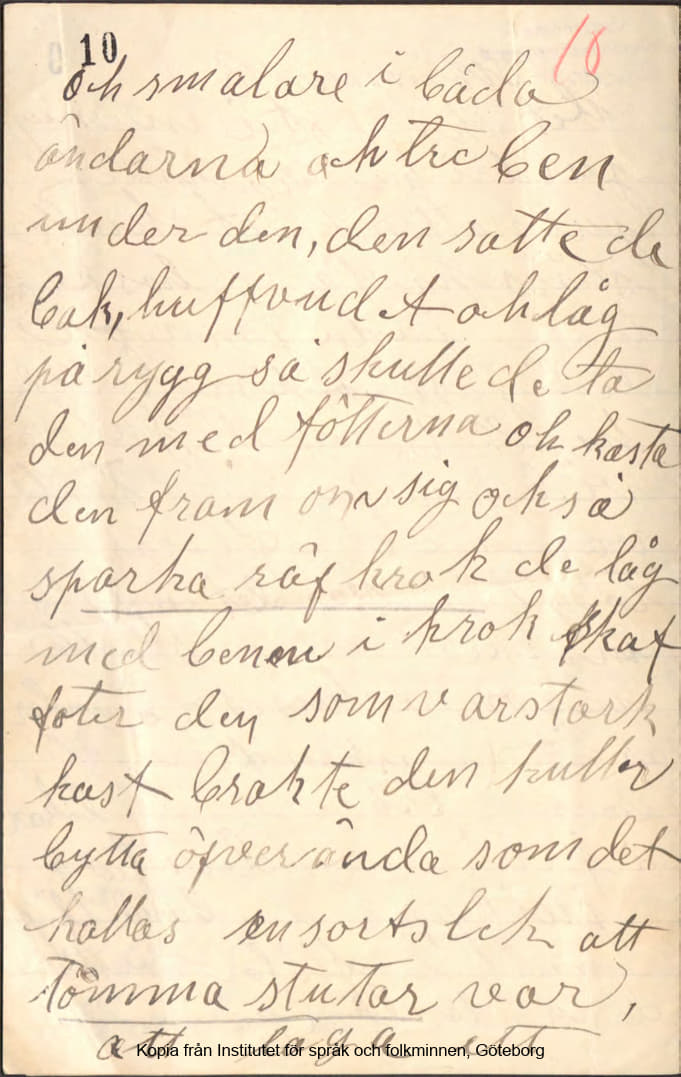 10
10
och smalare i båda
ändarna och tre ben
under den, den satte de
bak, huffvudet och låg
på rygg så skulle de ta
den med fötterna och kasta
den fram om sig också
sparka räf krok de låg
med benen i krok skaf
föter den som var stark
kast brakte den kuller
bytta öfverända som det
kallas en sorts lek att
tömma stutar var,
att laga ett
Kopia från Institutet för språk och folkminnen, Göteborg